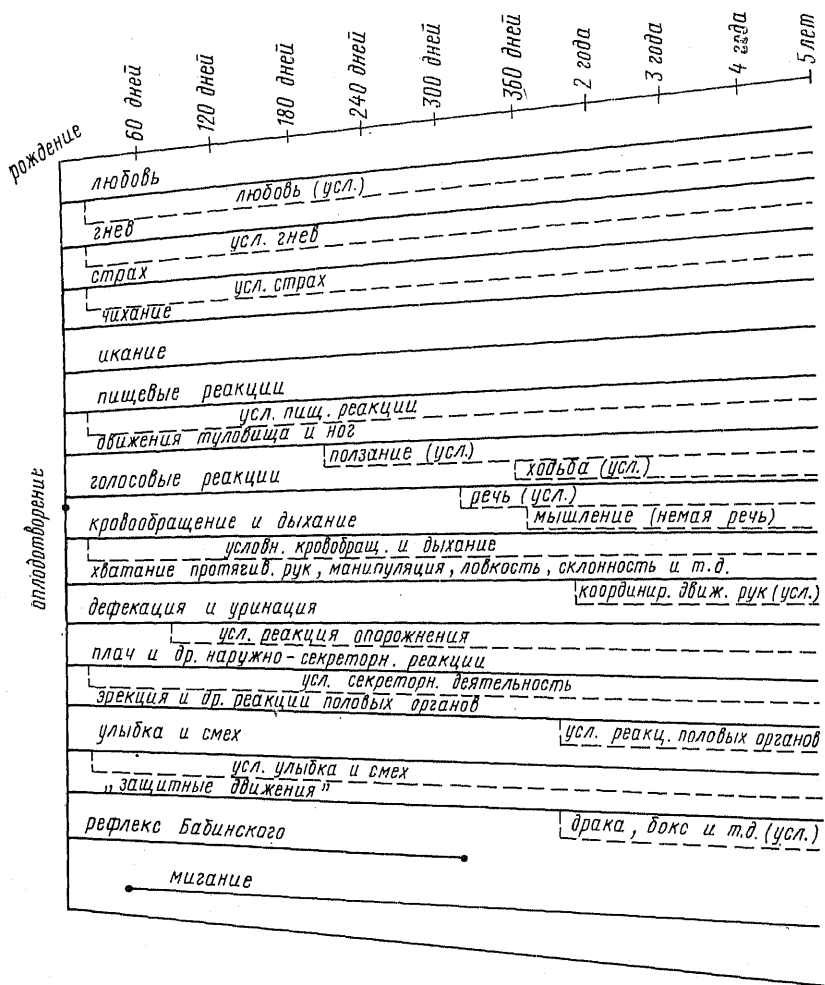 рождение
60 дней
120 дней
180 дней
240 дней
300 дней
360 дней
2 года
3 года
4 года
5 лет
оплодотворение
любовь
любовь (усл.)
гнев
усл. гнев
страх
усл. страх
чихание
икание
пищевые реакции
усл. пищ. реакции
движения туловища и ног
ползание (усл.)
ходьба (усл.)
голосовые реакции
речь (усл.)
мышление (немая речь)
кровообращение и дыхание
условн. кровобращ. и дыхание
хватание протягив. рук, манипуляция, ловкость, склонность и т.д.
координир. движ. рук (усл.)
дефекация и уринация
усл. реакция опорожнения
плач и др. наружно-секреторн. реакции
усл. секреторн. деятельность
эрекция и др. реакции половых органов
усл. реакц. половых органов
улыбка и смех
усл. улыбка и смех
„защитные движения”
драка, бокс и т.д. (усл.)
рефлекс Бабинского
мигание